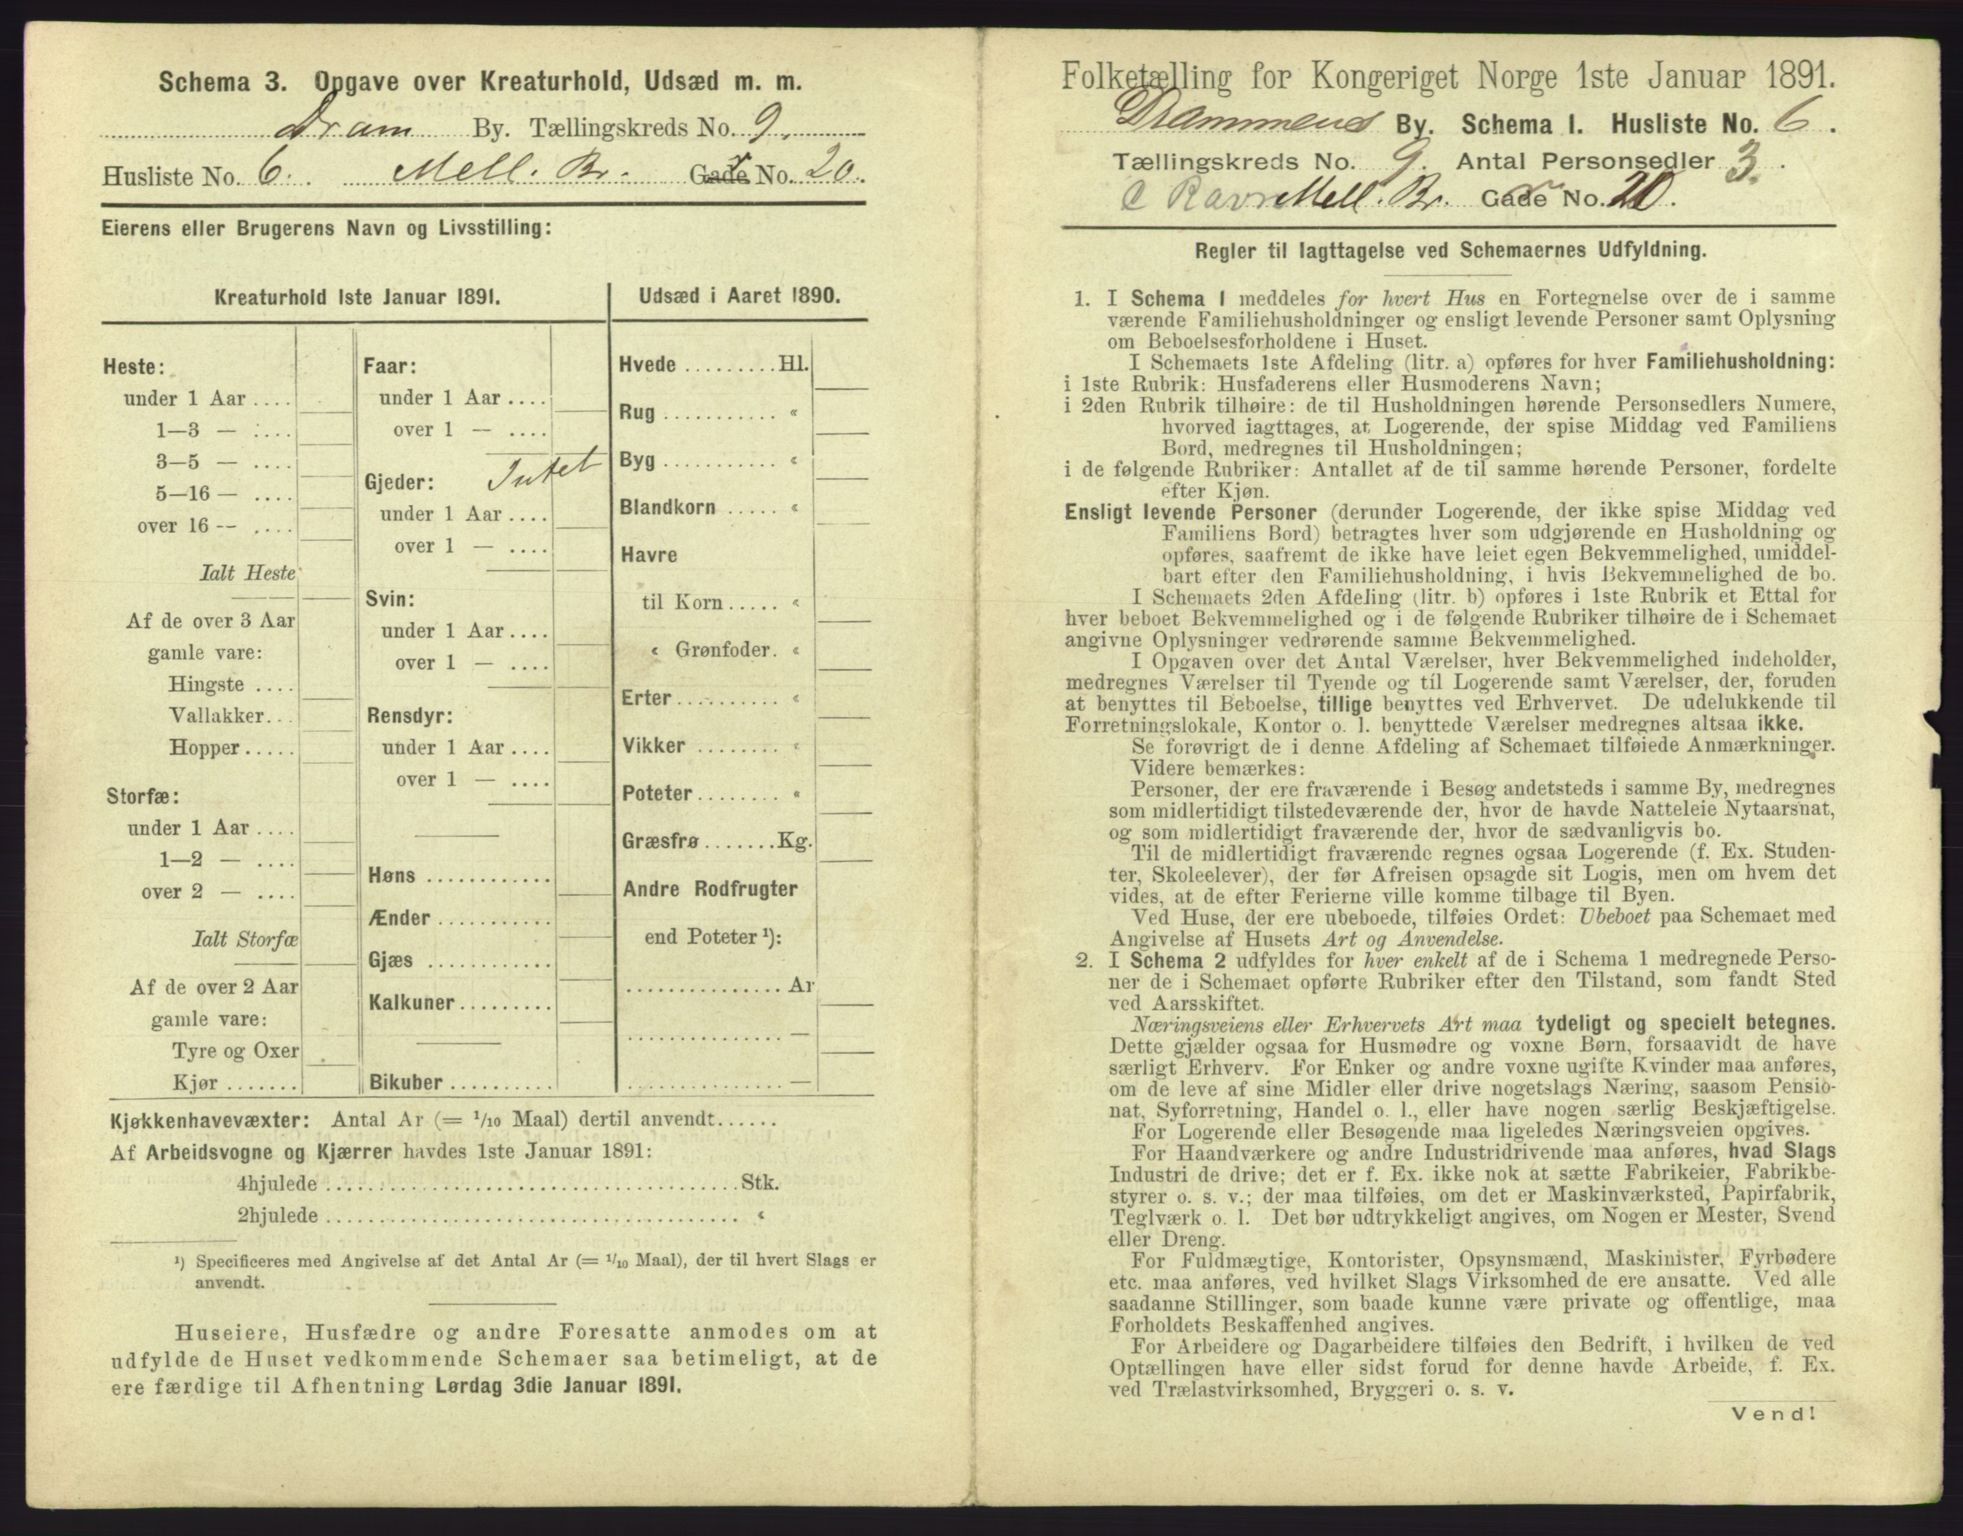 Schema 3. Opgave over Kreaturhold, Udsæd m. m.
Dram By. Tællingskreds No. 9.
Husliste No. 6. Mell. Br. Gade No. 20.
Eierens eller Brugerens Navn og Livsstilling:
Kreaturhold 1ste Januar 1891.
Heste:
under 1 Aar ....
1—3 — ....
3—5 — ....
5—16 — ....
over 16 -- ....
Ialt Heste
Af de over 3 Aar
gamle vare:
Hingste ....
Vallakker...
Hopper .....
Storfæ:
under 1 Aar ....
1—2 — ....
over 2 — ....
Ialt Storfæ
Af de over 2 Aar
gamle vare:
Tyre og Oxer
Kjør .......
Faar:
under 1 Aar ....
over 1 — ....
Gjeder: Intet
under 1 Aar ....
over 1 — ....
Svin:
under 1 Aar ....
over 1 — ....
Rensdyr:
under 1 Aar ....
over 1 — ....
Høns ............
Ænder ...........
Gjæs ............
Kalkuner .........
Bikuber ..........
Udsæd i Aaret 1890.
Hvede ......... Hl.
Rug ........... «
Byg ........... «
Blandkorn ..... «
Havre
til Korn ..... «
« Grønfoder. «
Erter .......... «
Vikker ........ «
Poteter ........ «
Græsfrø ....... Kg.
Andre Rodfrugter
end Poteter ¹):
............... Ar
............... —
............... —
Kjøkkenhavevæxter: Antal Ar (= 1/10 Maal) dertil anvendt......
Af Arbeidsvogne og Kjærrer havdes 1ste Januar 1891:
4hjulede ............................... Stk.
2hjulede ............................... «
¹) Specificeres med Angivelse af det Antal Ar (= 1/10 Maal), der til hvert Slags er
anvendt.
Huseiere, Husfædre og andre Foresatte anmodes om at
udfylde de Huset vedkommende Schemaer saa betimeligt, at de
ere færdige til Afhentning Lørdag 3die Januar 1891.
Folketælling for Kongeriget Norge 1ste Januar 1891.
Drammens By. Schema 1. Husliste No. 6.
Tællingskreds No. 9. Antal Personsedler 3.
C Ravn Mell. Br. Gade No. 20.
Regler til Iagttagelse ved Schemaernes Udfyldning.
1. I Schema 1 meddeles for hvert Hus en Fortegnelse over de i samme
værende Familiehusholdninger og ensligt levende Personer samt Oplysning
om Beboelsesforholdene i Huset.
I Schemaets 1ste Afdeling (litr. a) opføres for hver Familiehusholdning:
i 1ste Rubrik: Husfaderens eller Husmoderens Navn;
i 2den Rubrik tilhøire: de til Husholdningen hørende Personsedlers Numere,
hvorved iagttages, at Logerende, der spise Middag ved Familiens
Bord, medregnes til Husholdningen;
i de følgende Rubriker: Antallet af de til samme hørende Personer, fordelte
efter Kjøn.
Ensligt levende Personer (derunder Logerende, der ikke spise Middag ved
Familiens Bord) betragtes hver som udgjørende en Husholdning og
opføres, saafremt de ikke have leiet egen Bekvemmelighed, umiddel-
bart efter den Familiehusholdning, i hvis Bekvemmelighed de bo.
I Schemaets 2den Afdeling (litr. b) opføres i 1ste Rubrik et Ettal for
hver beboet Bekvemmelighed og i de følgende Rubriker tilhøire de i Schemaet
angivne Oplysninger vedrørende samme Bekvemmelighed.
I Opgaven over det Antal Værelser, hver Bekvemmelighed indeholder,
medregnes Værelser til Tyende og til Logerende samt Værelser, der, foruden
at benyttes til Beboelse, tillige benyttes ved Erhvervet. De udelukkende til
Forretningslokale, Kontor o. l. benyttede Værelser medregnes altsaa ikke.
Se forøvrigt de i denne Afdeling af Schemaet tilføiede Anmærkninger.
Videre bemærkes:
Personer, der ere fraværende i Besøg andetsteds i samme By, medregnes
som midlertidigt tilstedeværende der, hvor de havde Natteleie Nytaarsnat,
og som midlertidigt fraværende der, hvor de sædvanligvis bo.
Til de midlertidigt fraværende regnes ogsaa Logerende (f. Ex. Studen-
ter, Skoleelever), der før Afreisen opsagde sit Logis, men om hvem det
vides, at de efter Ferierne ville komme tilbage til Byen.
Ved Huse, der ere ubeboede, tilføies Ordet: Ubeboet paa Schemaet med
Angivelse af Husets Art og Anvendelse.
2. I Schema 2 udfyldes for hver enkelt af de i Schema 1 medregnede Perso-
ner de i Schemaet opførte Rubriker efter den Tilstand, som fandt Sted
ved Aarsskiftet.
Næringsveiens eller Erhvervets Art maa tydeligt og specielt betegnes.
Dette gjælder ogsaa for Husmødre og voxne Børn, forsaavidt de have
særligt Erhverv. For Enker og andre voxne ugifte Kvinder maa anføres,
om de leve af sine Midler eller drive nogetslags Næring, saasom Pensio-
nat, Syforretning, Handel o. l., eller have nogen særlig Beskjæftigelse.
For Logerende eller Besøgende maa ligeledes Næringsveien opgives.
For Haandværkere og andre Industridrivende maa anføres, hvad Slags
Industri de drive; det er f. Ex. ikke nok at sætte Fabrikeier, Fabrikbe-
styrer o. s. v.; der maa tilføies, om det er Maskinværksted, Papirfabrik,
Teglværk o. l. Det bør udtrykkeligt angives, om Nogen er Mester, Svend
eller Dreng.
For Fuldmægtige, Kontorister, Opsynsmænd, Maskinister, Fyrbødere
etc. maa anføres, ved hvilket Slags Virksomhed de ere ansatte. Ved alle
saadanne Stillinger, som baade kunne være private og offentlige, maa
Forholdets Beskaffenhed angives.
For Arbeidere og Dagarbeidere tilføies den Bedrift, i hvilken de ved
Optællingen have eller sidst forud for denne havde Arbeide, f. Ex.
ved Trælastvirksomhed, Bryggeri o. s. v.
Vend!